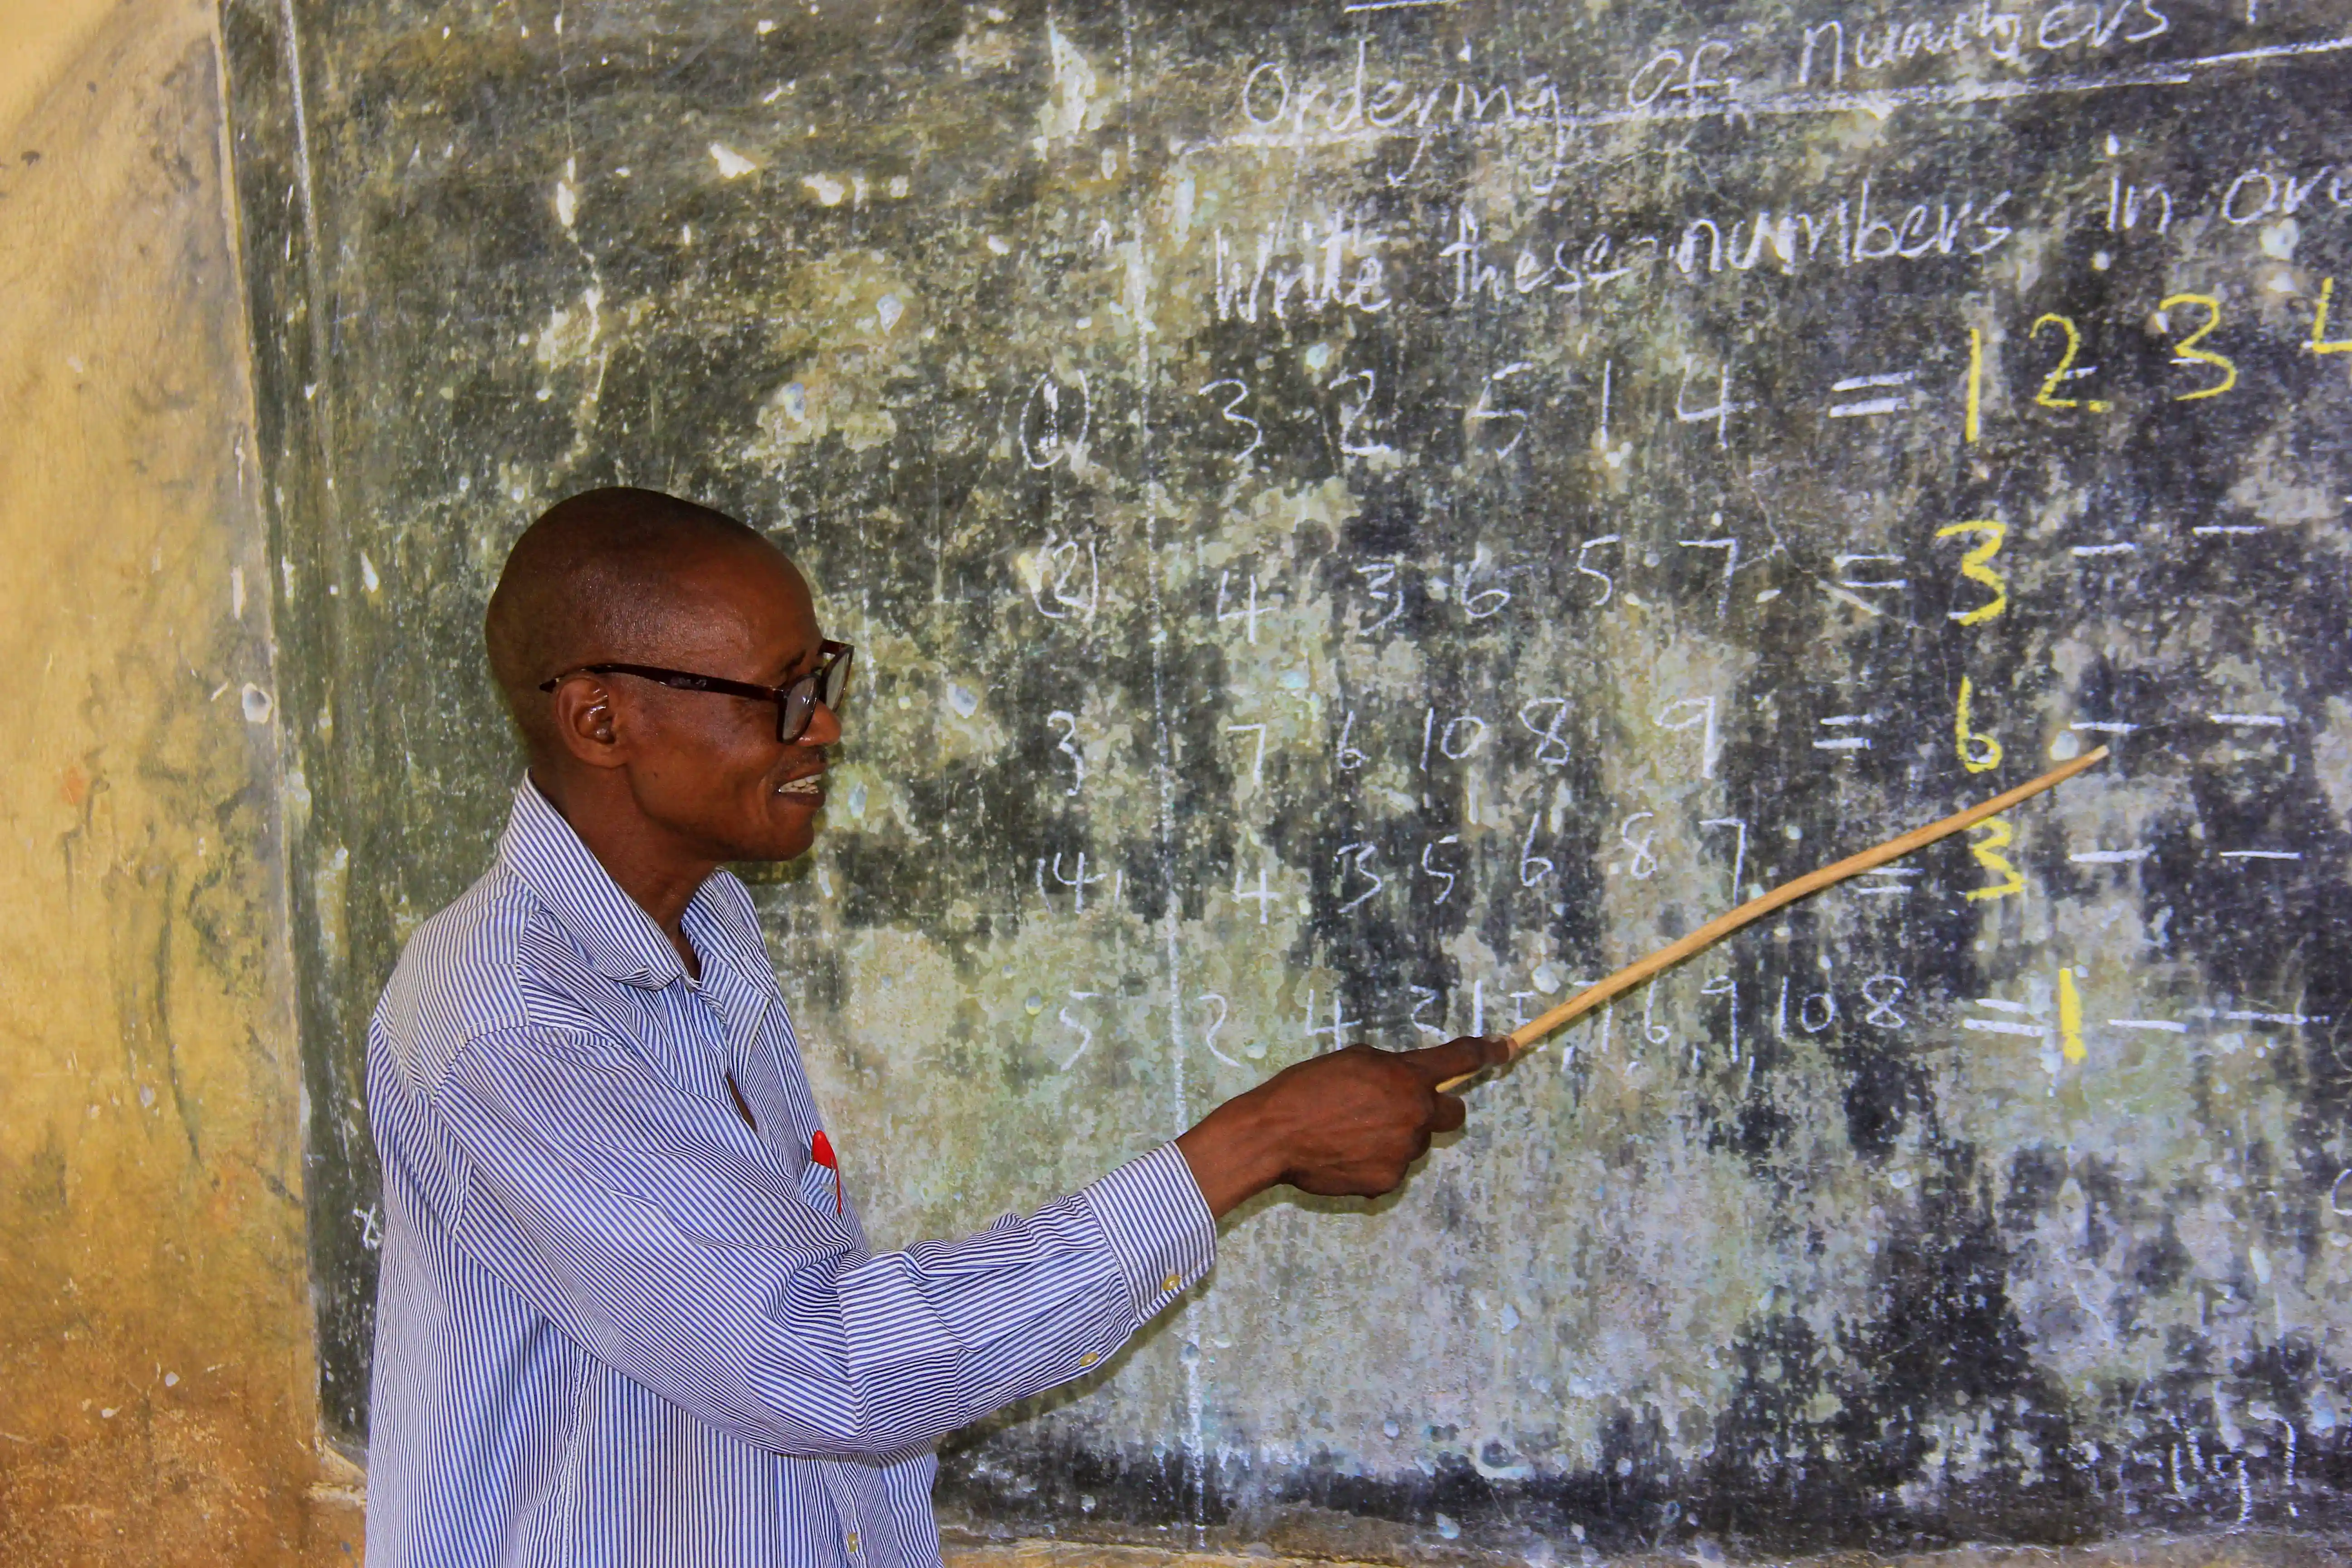 Ordering of numbers
Write these numbers in
(1) 3 2 5 1 4 = 1 2 3 4
(2) 4 3 6 5 7 = 3 - -
3 7 6 10 8 9 = 6 - -
(4) 4 3 5 6 8 7 = 3 - -
5 2 4 3 1 7, 6, 9, 10 8 = 1 - -